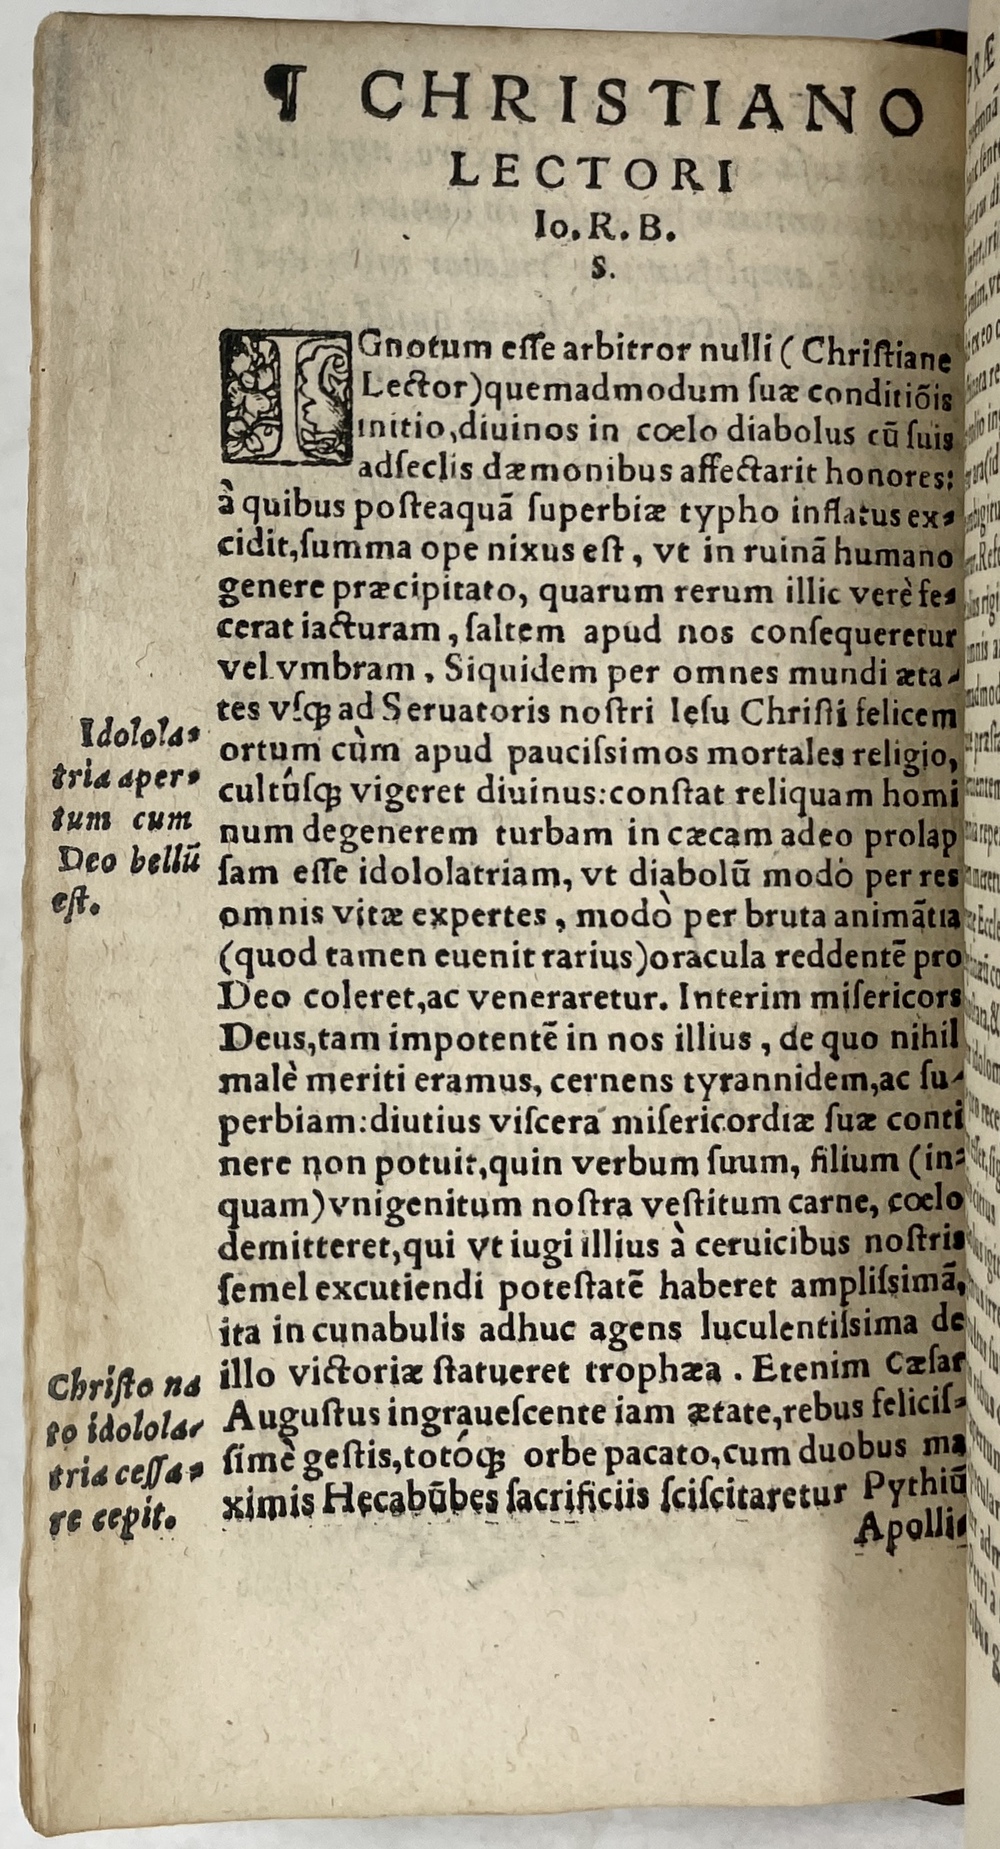 ¶ CHRISTIANO
LECTORI
Io. R. B.
S.
IGnotum eſſe arbitror nulli (Chriſtiane
Lector) quemadmodum ſuæ conditiõis
initio, diuinos in cœlo diabolus cũ ſuis
adſeclis dæmonibus affectarit honores:
à quibus poſteaquã ſuperbiæ typho inflatus ex-
cidit, ſumma ope nixus eſt, vt in ruinã humano
genere præcipitato, quarum rerum illic verè fe-
cerat iacturam, ſaltem apud nos conſequeretur
vel vmbram. Siquidem per omnes mundi æta-
tes vſqꝫ ad Seruatoris noſtri Ieſu Chriſti felicem
ortum cùm apud pauciſsimos mortales religio,
cultúſqꝫ vigeret diuinus: conſtat reliquam homi
num degenerem turbam in cæcam adeo prolap
ſam eſſe idololatriam, vt diabolũ modò per res
omnis vitæ expertes, modò per bruta animãtia
(quod tamen euenit rarius) oracula reddentẽ pro
Deo coleret, ac veneraretur. Interim miſericors
Deus, tam impotentẽ in nos illius, de quo nihil
malè meriti eramus, cernens tyrannidem, ac ſu-
perbiam: diutius viſcera miſericordiæ ſuæ conti
nere non potuit, quin verbum ſuum, filium (in-
quam) vnigenitum noſtra veſtitum carne, cœlo
demitteret, qui vt iugi illius à ceruicibus noſtris
ſemel excutiendi poteſtatẽ haberet ampliſsimã,
ita in cunabulis adhuc agens luculentiſsima de
illo victoriæ ſtatueret trophæa. Etenim Cæſar
Auguſtus ingraueſcente iam ætate, rebus feliciſ-
ſimè geſtis, totóqꝫ orbe pacato, cum duobus ma
ximis Hecabũbes ſacrificiis ſciſcitaretur Pythiũ
Apolli-
Idolola-
tria aper-
tum cum
Deo bellũ
eſt.
Chriſto na
to idolola-
tria ceſſa-
re cepit.